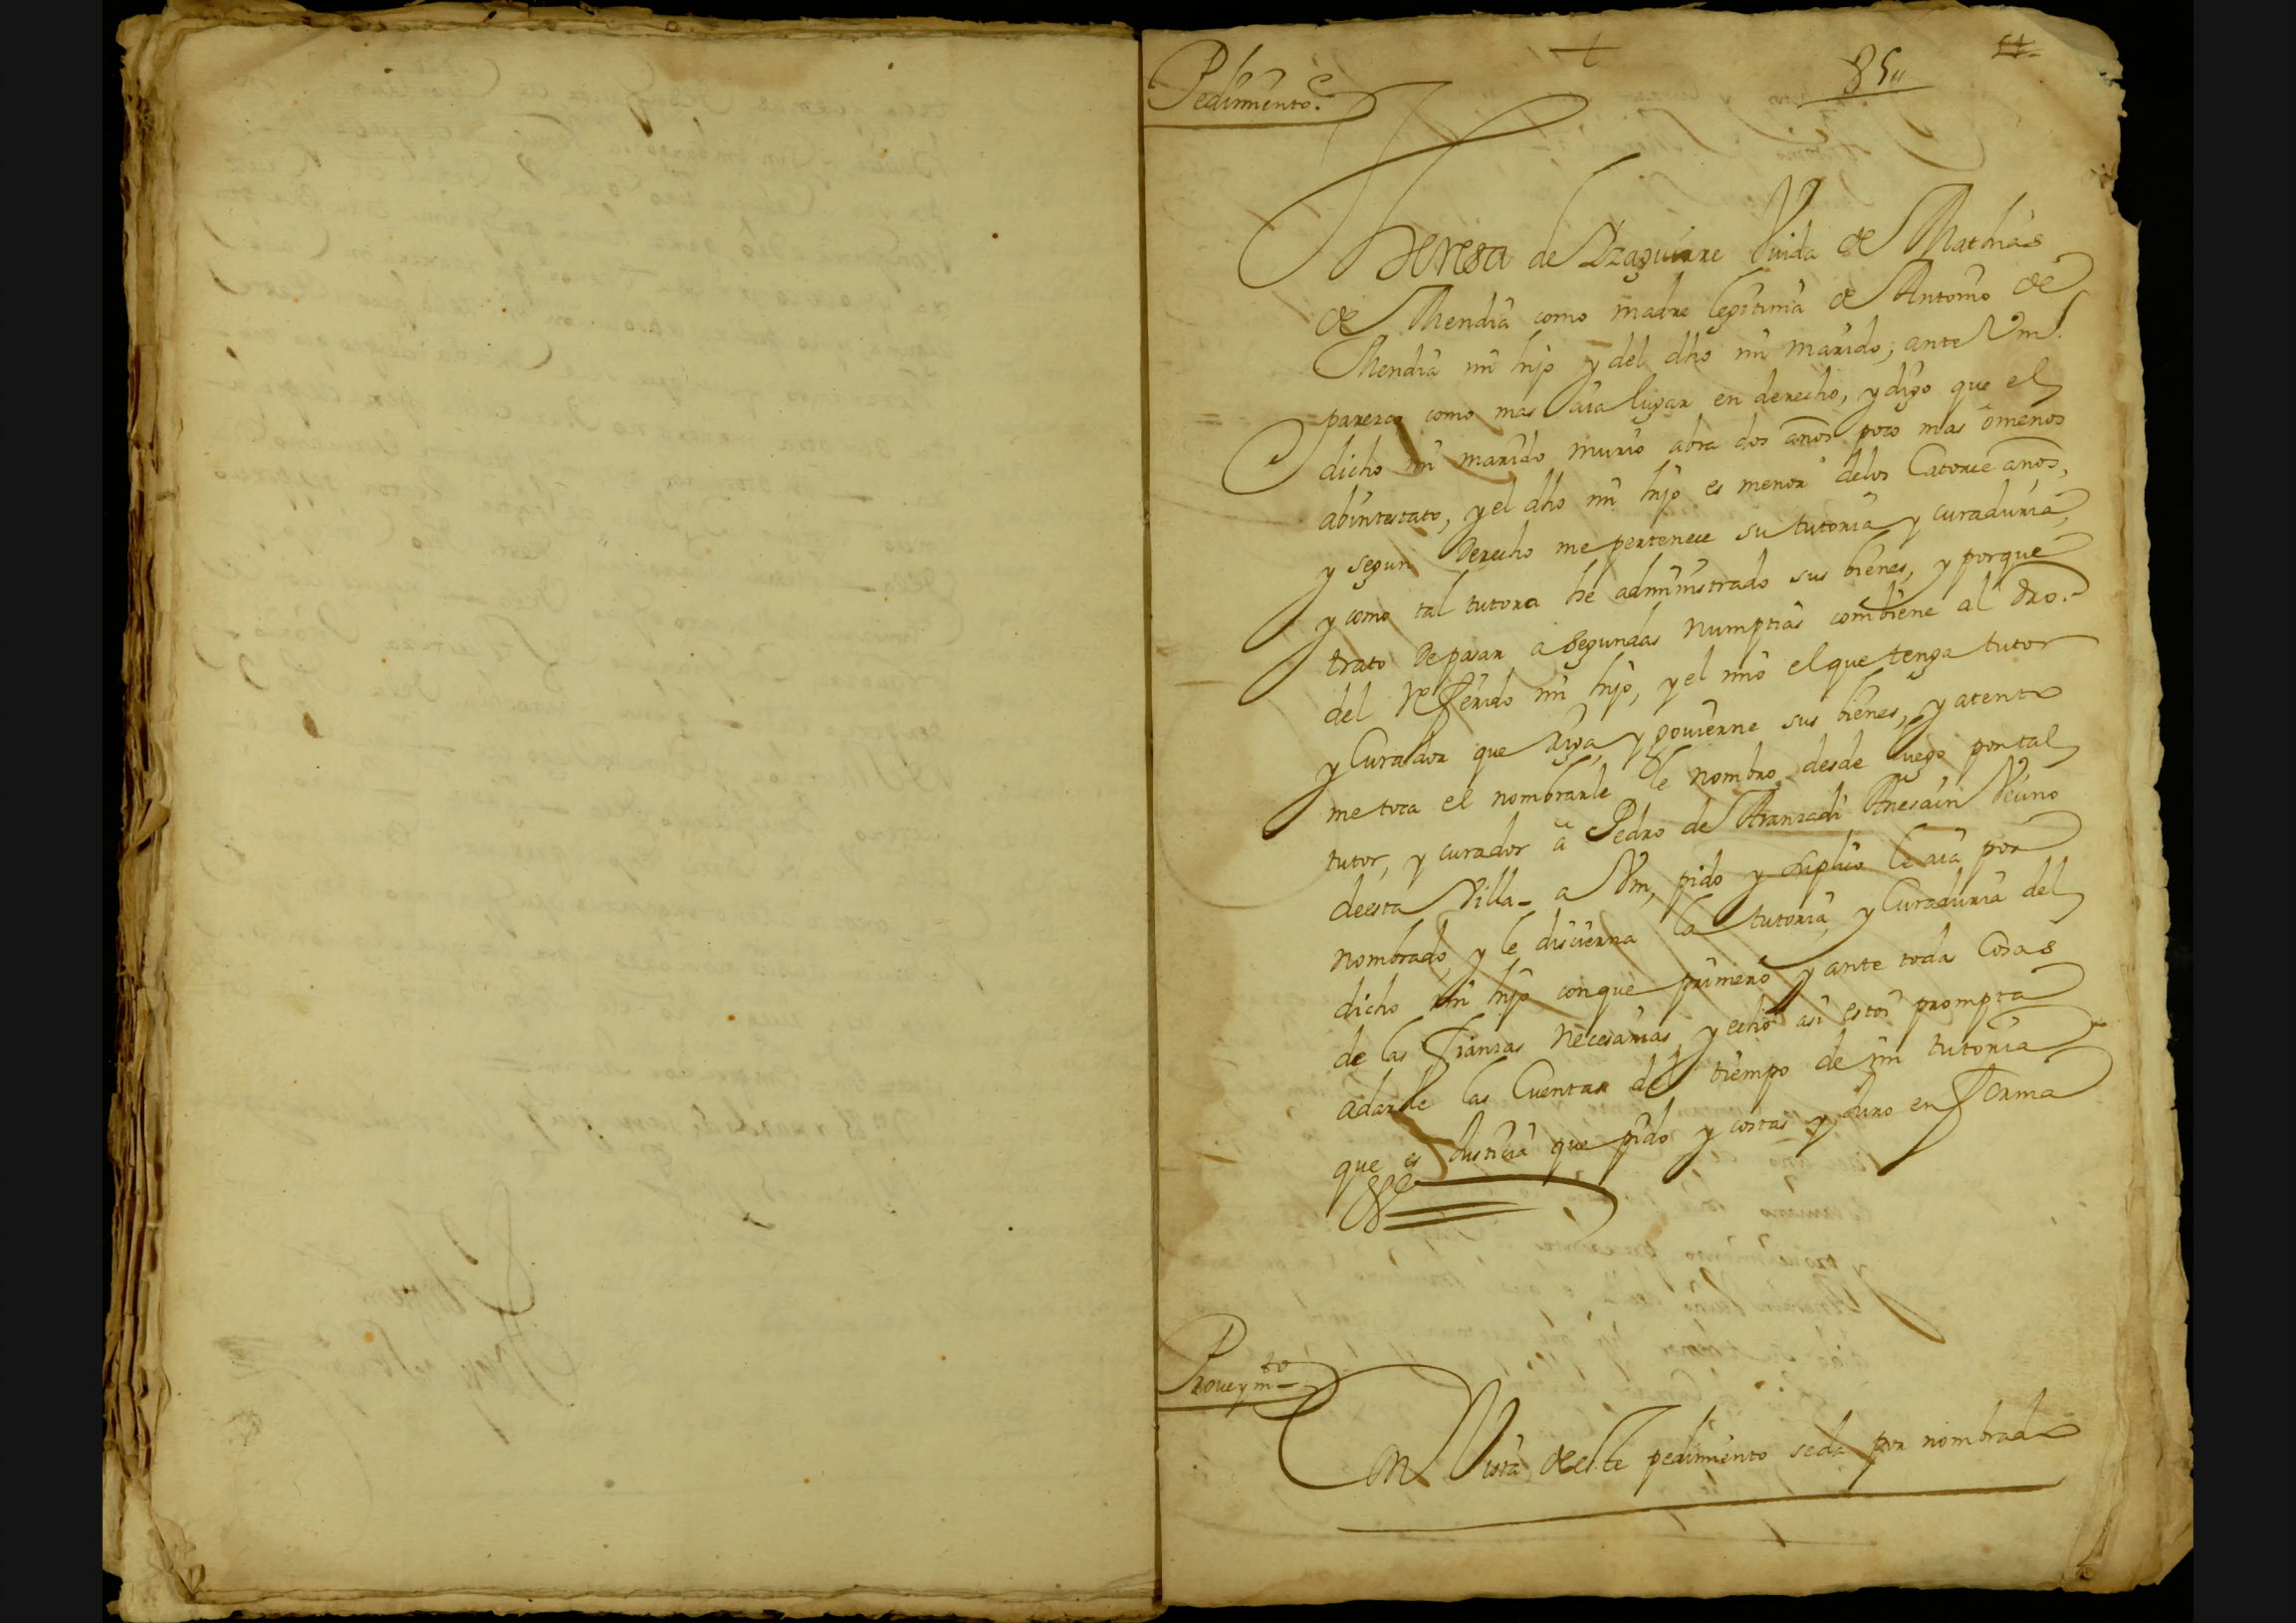 Pedimiento.
85
Theresa de Yzaguirre Viuda de Mathias
de Mendia como madre legitima de Antonio de
Mendia mi hijo y del dho mi marido, ante Vm.
parezco como mas aia lugar en derecho, y digo que el
dicho mi marido murio abra dos años poco mas ô menos
abintestato, y el dho mi hijo es menor delos Catorce años,
y segun Derecho me pertenece su tutoria y curaduria,
y como tal tutora he administrado sus bienes, y porque
trato de pasar a segundas numptias combiene al dro.
del Referido mi hijo, y el mio el que tenga tutor
y Curador que rija, y govierne sus bienes, y atento
me toca el nombrarle le nombro desde luego por tal
tutor, y curador â Pedro de Aranzadi Anesain Vecino
de esta Villa_ a Vm, pido y suplico le aia por
nombrado, y le discierna la tutoria, y Curaduria del
dicho mi hijo con que primero y ante toda Cosas
de las fianzas necesarias, y echo asi estoi prompta
a darle las Cuentas del tiempo de mi tutoria
que es Justicia que pido y costas y Juro en forma
Proueymto
Con Vista de este pedimiento se da por nombrado